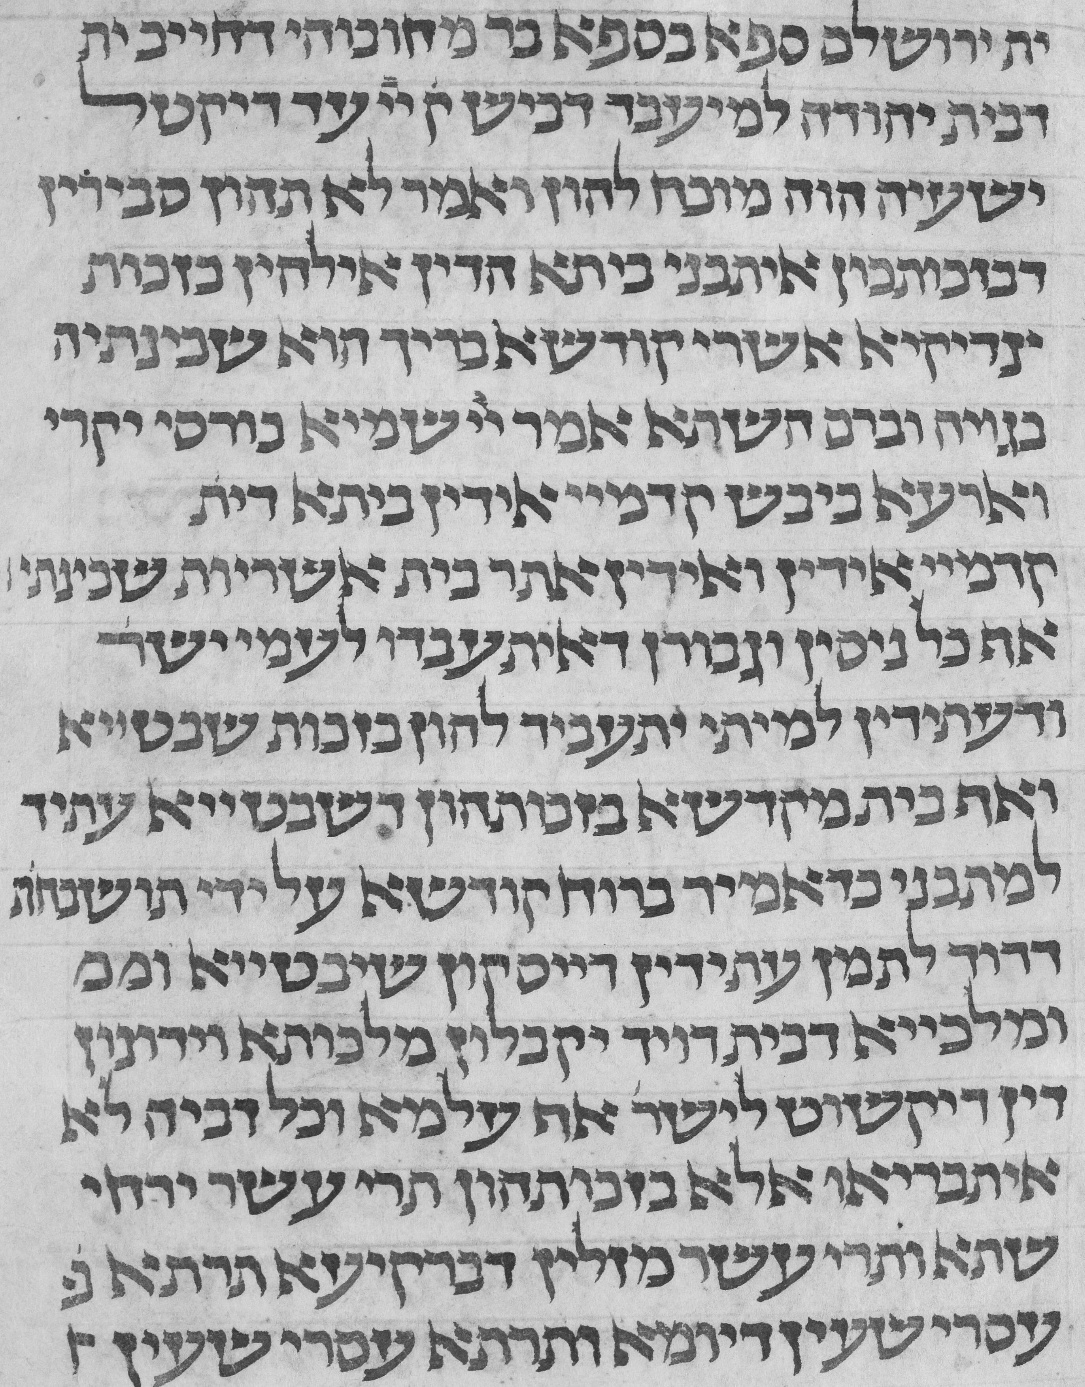 ית ירושלם ספא בספא בר מחובוהי דחייב ית
דבית יהודה למיעבד דביש ק יי עד דיקטל
ישעיה הוה מוכח להון ואמר לא תהון סבירין
דבזכותכון איתבני ביתא הדין אילהין בזכות
צדיקיא אשרי קודשא בריך הוא שכינתיה
בגויה וברם השתא אמר יי שמיא כורסי יקרי
וארעא כיבש קדמיי אידין ביתא דית
קדמיי אידין ואידין אתר בית אשריות שכינתי
אף כל ניסין וגבורן דאיתעבדו לעמי ישר
ודעתידין למיתי יתעביד להון בזכות שבטייא
ואף בית מקדשא בזכותהון דשבטייא עתיד
למתבני כדאמיר ברוח קודשא על ידי תושבחת
דדויד לתמן עתידין דייסקון שיבטייא וממ
ומלכייא דבית דויד יקבלון מלכותא וידונון
דין דיקשוט לישר אף עלמא וכל דביה לא
איתבריאו אלא בזכותהון תרי עשר ירחי
שתא ותרי עשר מזלין דברקיעא תרתא
עסרי שעין דיומא ותרתא עסרי שעין